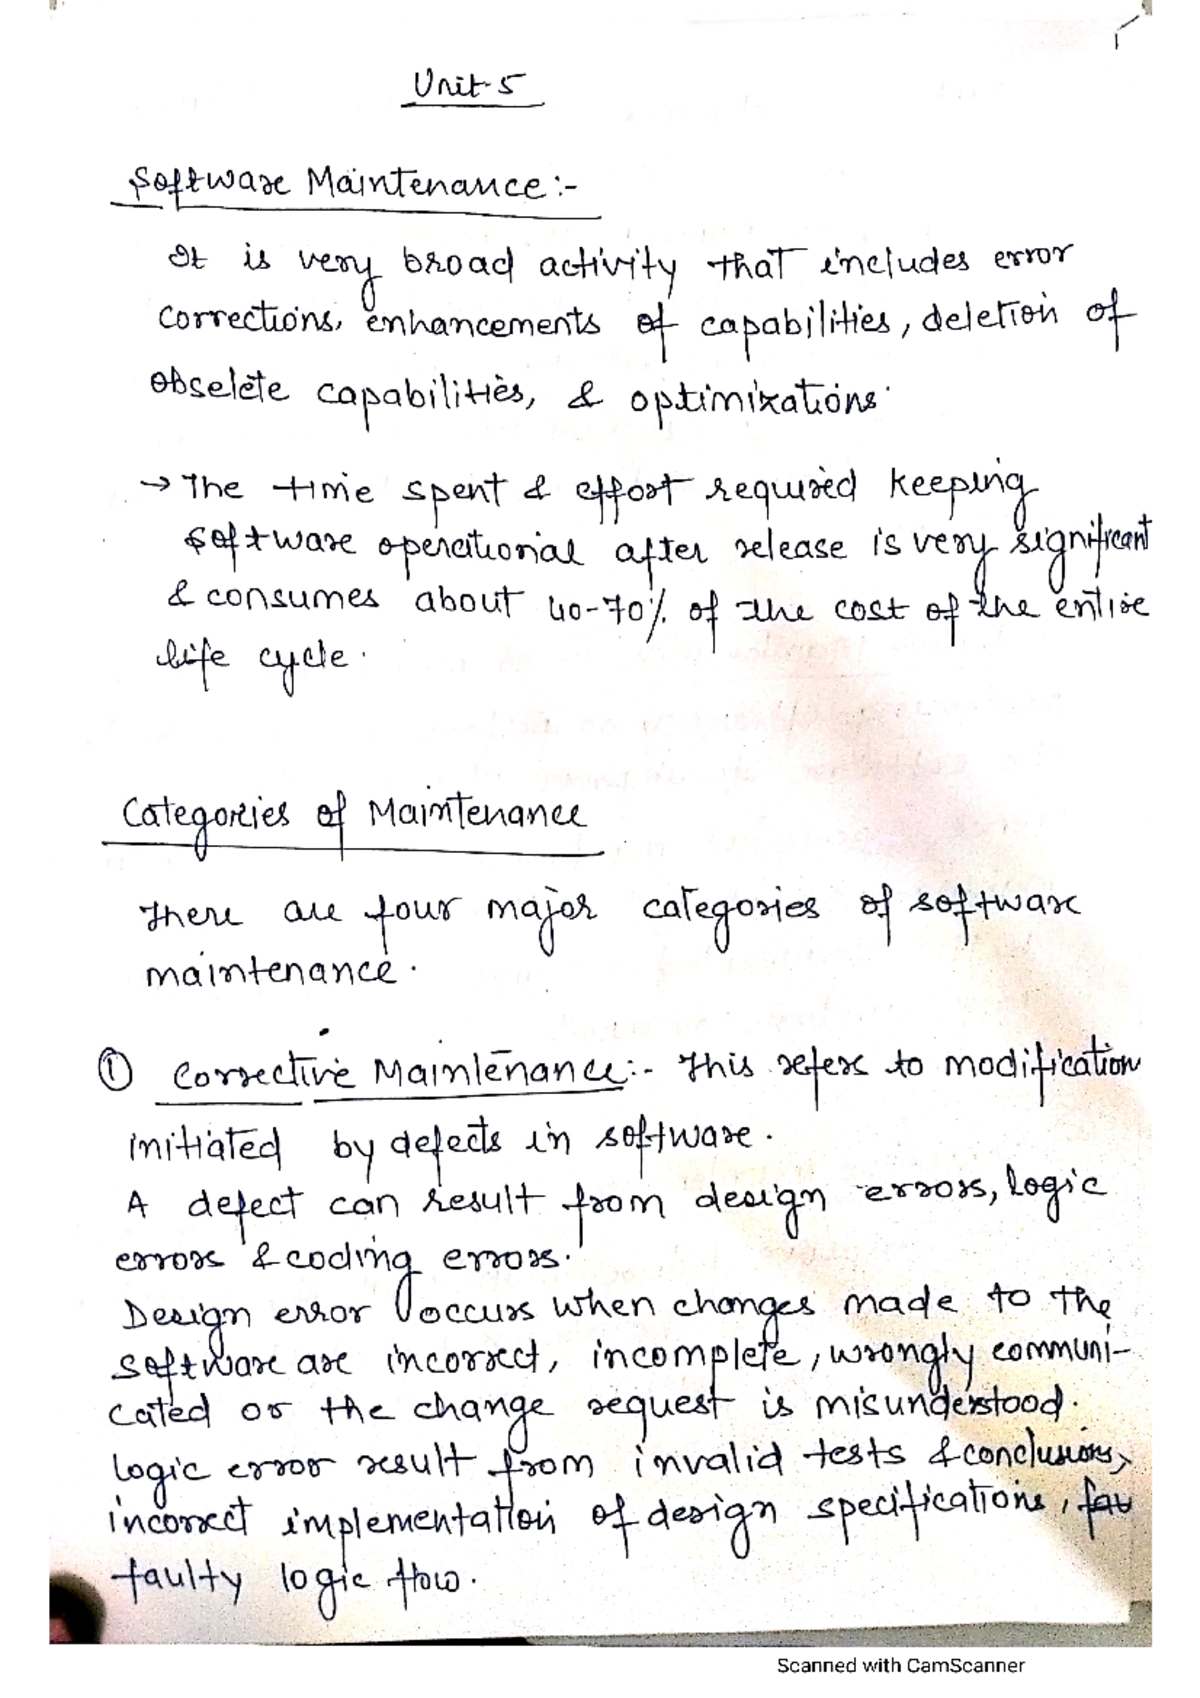 Unit-5
Software Maintenance:-
It is very broad activity that includes error
corrections, enhancements of capabilities, deletion of
obselete capabilities, & optimixations.
→ The time spent & effort required keeping
software operational after release is very significant
& consumes about 40-70% of the cost of the entire
life cycle.
Categories of Maintenance
There are four major categories of software
maintenance.
① Corrective Maintenance:- This refers to modification
initiated by defects in software.
A defect can result from design errors, logic
errors & coding errors.
Design error occurs when changes made to the
software are incorrect, incomplete, wrongly communi-
cated or the change request is misunderstood.
logic error result from invalid tests & conclusions,
incorrect implementation of design specifications, fau
faulty logic flow.
Scanned with CamScanner